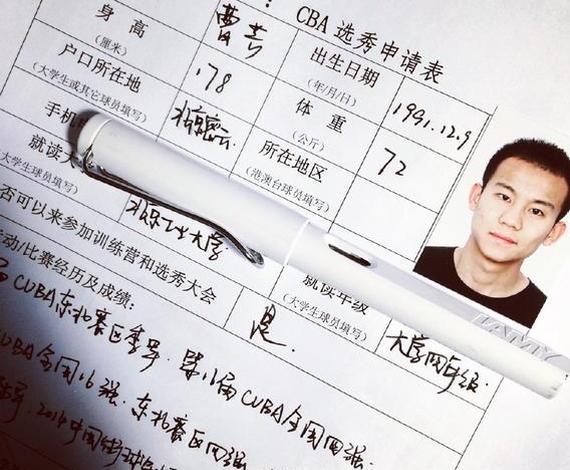 CBA 选秀申请表
曹芳
出生日期
(年/月/日)
1991.12.9
身 高
(厘米)
178
体 重
(公斤)
72
户口所在地
(大学生或其它球员填写)
北京密云
所在地区
(港澳台球员填写)
手机
就读大
大学生球员填写)
北京工业大学
就读年级
(大学生球员填写)
大学四年级
否可以来参加训练营和选秀大会
是.
动/比赛经历及成绩:
CUBA东北赛区季军. 第八届CUBA全国四强.
UBA全国16强. 东北赛区四强
2014中国街球
LAMY